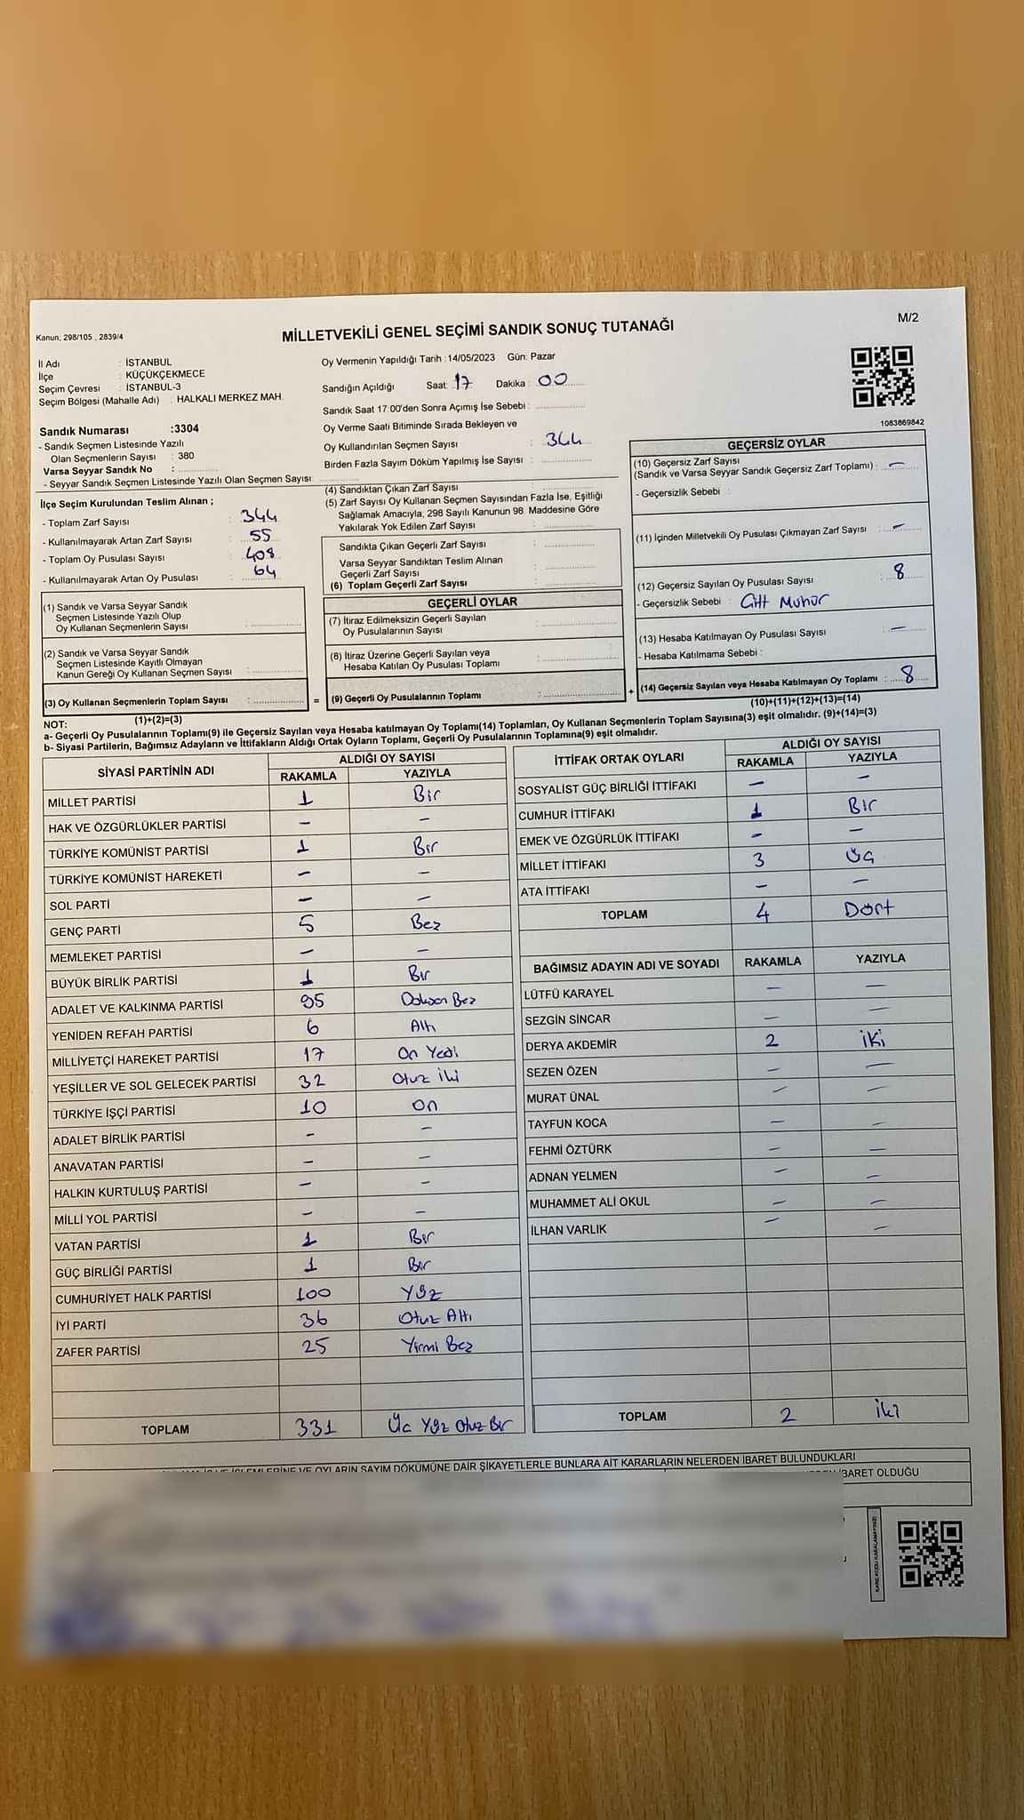 M/2
Kanun, 298/105 , 2839/4
MİLLETVEKİLİ GENEL SEÇİMİ SANDIK SONUÇ TUTANAĞI
İl Adı : İSTANBUL
İlçe : KÜÇÜKÇEKMECE
Seçim Çevresi : İSTANBUL-3
Seçim Bölgesi (Mahalle Adı) : HALKALI MERKEZ MAH.
Sandık Numarası :3304
- Sandık Seçmen Listesinde Yazılı
Olan Seçmenlerin Sayısı : 380
Varsa Seyyar Sandık No :
- Seyyar Sandık Seçmen Listesinde Yazılı Olan Seçmen Sayısı :
Oy Vermenin Yapıldığı Tarih : 14/05/2023 Gün: Pazar
Sandığın Açıldığı Saat: 17 Dakika : 00
Sandık Saat 17:00'den Sonra Açımış İse Sebebi :
Oy Verme Saati Bitiminde Sırada Bekleyen ve
Oy Kullandırılan Seçmen Sayısı : 344
Birden Fazla Sayım Döküm Yapılmış İse Sayısı :
1083869842
İlçe Seçim Kurulundan Teslim Alınan ;
- Toplam Zarf Sayısı : 344
- Kullanılmayarak Artan Zarf Sayısı : 55
- Toplam Oy Pusulası Sayısı : 408
- Kullanılmayarak Artan Oy Pusulası : 64
(1) Sandık ve Varsa Seyyar Sandık
Seçmen Listesinde Yazılı Olup
Oy Kullanan Seçmenlerin Sayısı :
(2) Sandık ve Varsa Seyyar Sandık
Seçmen Listesinde Kayıtlı Olmayan
Kanun Gereği Oy Kullanan Seçmen Sayısı :
(3) Oy Kullanan Seçmenlerin Toplam Sayısı : =
(1)+(2)=(3)
(4) Sandıktan Çıkan Zarf Sayısı :
(5) Zarf Sayısı Oy Kullanan Seçmen Sayısından Fazla İse, Eşitliği
Sağlamak Amacıyla, 298 Sayılı Kanunun 98. Maddesine Göre
Yakılarak Yok Edilen Zarf Sayısı :
Sandıkta Çıkan Geçerli Zarf Sayısı :
Varsa Seyyar Sandıktan Teslim Alınan
Geçerli Zarf Sayısı :
(6) Toplam Geçerli Zarf Sayısı :
GEÇERLİ OYLAR
(7) İtiraz Edilmeksizin Geçerli Sayılan
Oy Pusulalarının Sayısı :
(8) İtiraz Üzerine Geçerli Sayılan veya
Hesaba Katılan Oy Pusulası Toplamı :
(9) Geçerli Oy Pusulalarının Toplamı : +
GEÇERSİZ OYLAR
(10) Geçersiz Zarf Sayısı
(Sandık ve Varsa Seyyar Sandık Geçersiz Zarf Toplamı) : –
- Geçersizlik Sebebi :
(11) İçinden Milletvekili Oy Pusulası Çıkmayan Zarf Sayısı : –
(12) Geçersiz Sayılan Oy Pusulası Sayısı : 8
- Geçersizlik Sebebi : Çift Mühür
(13) Hesaba Katılmayan Oy Pusulası Sayısı : –
- Hesaba Katılmama Sebebi :
(14) Geçersiz Sayılan veya Hesaba Katılmayan Oy Toplamı : 8
(10)+(11)+(12)+(13)=(14)
NOT:
a- Geçerli Oy Pusulalarının Toplamı(9) ile Geçersiz Sayılan veya Hesaba katılmayan Oy Toplamı(14) Toplamları, Oy Kullanan Seçmenlerin Toplam Sayısına(3) eşit olmalıdır. (9)+(14)=(3)
b- Siyasi Partilerin, Bağımsız Adayların ve İttifakların Aldığı Ortak Oyların Toplamı, Geçerli Oy Pusulalarının Toplamına(9) eşit olmalıdır.
SİYASİ PARTİNİN ADI ALDIĞI OY SAYISI
RAKAMLA YAZIYLA
MİLLET PARTİSİ 1 Bir
HAK VE ÖZGÜRLÜKLER PARTİSİ – –
TÜRKİYE KOMÜNİST PARTİSİ 1 Bir
TÜRKİYE KOMÜNİST HAREKETİ – –
SOL PARTİ – –
GENÇ PARTİ 5 Beş
MEMLEKET PARTİSİ – –
BÜYÜK BİRLİK PARTİSİ 1 Bir
ADALET VE KALKINMA PARTİSİ 95 Doksan Beş
YENİDEN REFAH PARTİSİ 6 Altı
MİLLİYETÇİ HAREKET PARTİSİ 17 On Yedi
YEŞİLLER VE SOL GELECEK PARTİSİ 32 Otuz İki
TÜRKİYE İŞÇİ PARTİSİ 10 On
ADALET BİRLİK PARTİSİ – –
ANAVATAN PARTİSİ – –
HALKIN KURTULUŞ PARTİSİ – –
MİLLİ YOL PARTİSİ – –
VATAN PARTİSİ 1 Bir
GÜÇ BİRLİĞİ PARTİSİ 1 Bir
CUMHURİYET HALK PARTİSİ 100 Yüz
İYİ PARTİ 36 Otuz Altı
ZAFER PARTİSİ 25 Yirmi Beş
TOPLAM 331 Üç Yüz Otuz Bir
İTTİFAK ORTAK OYLARI ALDIĞI OY SAYISI
RAKAMLA YAZIYLA
SOSYALİST GÜÇ BİRLİĞİ İTTİFAKI – –
CUMHUR İTTİFAKI 1 Bir
EMEK VE ÖZGÜRLÜK İTTİFAKI – –
MİLLET İTTİFAKI 3 Üç
ATA İTTİFAKI – –
TOPLAM 4 Dört
BAĞIMSIZ ADAYIN ADI VE SOYADI RAKAMLA YAZIYLA
LÜTFÜ KARAYEL – –
SEZGİN SİNCAR – –
DERYA AKDEMİR 2 İki
SEZEN ÖZEN – –
MURAT ÜNAL – –
TAYFUN KOCA – –
FEHMİ ÖZTÜRK – –
ADNAN YELMEN – –
MUHAMMET ALİ OKUL – –
İLHAN VARLIK – –
TOPLAM 2 İki
İŞLEMLERİNE VE OYLARIN SAYIM DÖKÜMÜNE DAİR ŞİKAYETLERLE BUNLARA AİT KARARLARIN NELERDEN İBARET BULUNDUKLARI
İBARET OLDUĞU